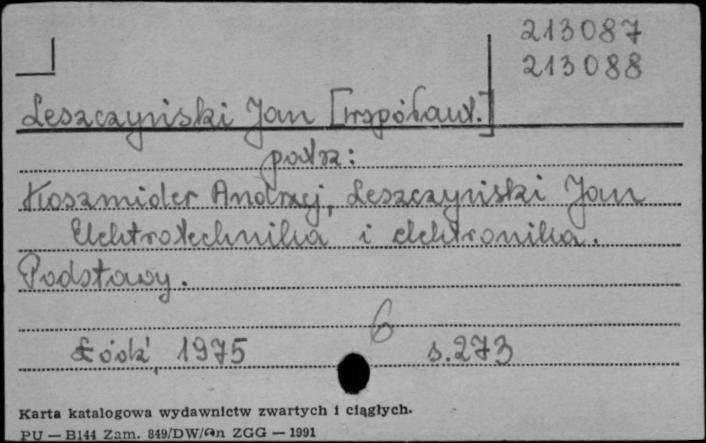 213087
213088
Leszczyński Jan [współaut.]
patrz:
Koszmider Andrzej, Leszczyński Jan
Elektrotechnika i elektronika.
Podstawy.
6
Łódź, 1975 s.273
Karta katalogowa wydawnictw zwartych i ciągłych.
PU — B144 Zam. 849/DW/ ZGG — 1991